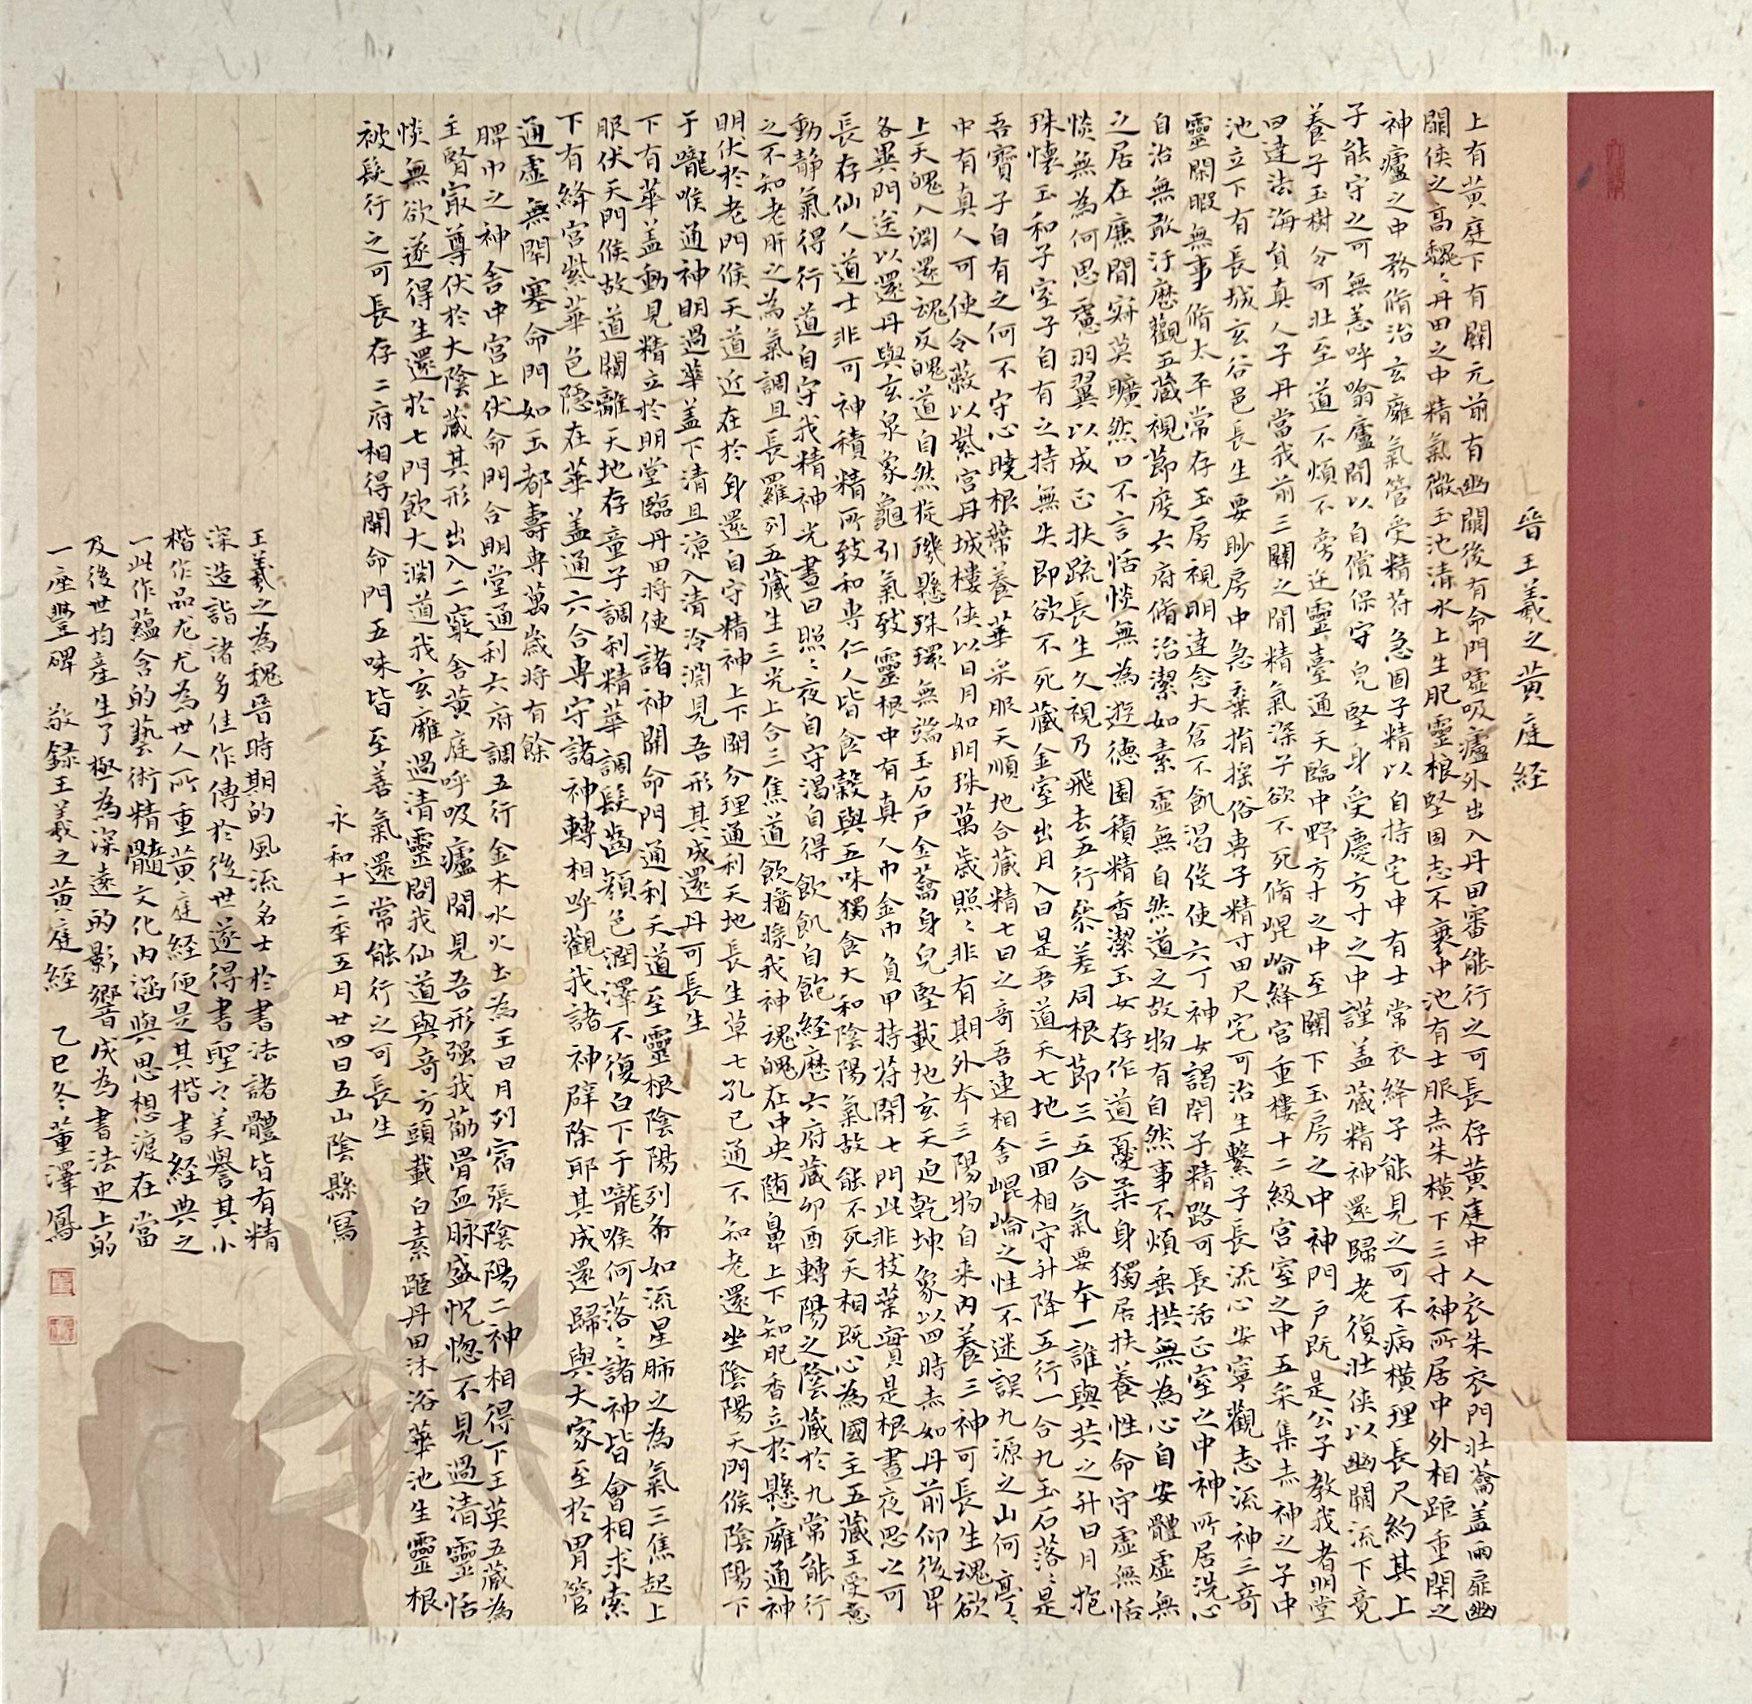 晉王羲之黃庭経
上有黃庭下有關元前有幽闕後有命門噓吸廬外出入丹田審能行之可長存黃庭中人衣朱衣關門壯蘥蓋兩扉幽
闕俠之高魏〻丹田之中精氣微玉池清水上生肥靈根堅固志不衰中池有士服赤朱橫下三寸神所居中外相距重閉之
神廬之中務脩治玄廱氣管受精符急固子精以自持宅中有士常衣絳子能見之可不病橫理長尺約其上
子能守之可無恙呼噏廬間以自償保守皃堅身受慶方寸之中謹蓋藏精神還歸老復壯俠以幽闕流下竟
養子玉樹令可壯至道不煩不旁迕靈臺通天臨中野方寸之中至關下玉房之中神門戶既是公子教我者明堂
四達法海員真人子丹當我前三關之間精氣深子欲不死脩崐崘絳宮重樓十二級宮室之中五采集赤神之子中
池立下有長城玄谷邑長生要眇房中急棄捐搖俗專子精寸田尺宅可治生繫子長流心安寧觀志流神三奇
靈閑暇無事脩太平常存玉房視明達念大倉不飢渴役使六丁神女謁閉子精路可長活正室之中神所居洗心
自治無敢汙歷觀五藏視節度六府脩治潔如素虛無自然道之故物有自然事不煩垂拱無為心自安體虛無
之居在廉間寂莫曠然口不言恬惔無為遊德園積精香潔玉女存作道憂柔身獨居扶養性命守虛無恬
惔無為何思慮羽翼以成正扶疏長生久視乃飛去五行參差同根節三五合氣要本一誰與共之升日月抱
珠懷玉和子室子自有之持無失即欲不死藏金室出月入日是吾道天七地三回相守升降五行一合九玉石落〻是
吾寶子自有之何不守心曉根蔕養華采服天順地合藏精七日之奇吾連相舍崐崘之性不迷誤九源之山何亭〻
中有真人可使令蔽以紫宮丹城樓俠以日月如明珠萬歲照〻非有期外本三陽物自来內養三神可長生魂欲
上天魄入淵還魂反魄道自然旋璣懸珠環無端玉石戶金蘥身皃堅載地玄天迫乾坤象以四時赤如丹前仰後卑
各異門送以還丹與玄泉象龜引氣致靈根中有真人巾金巾負甲持符開七門此非枝葉實是根晝夜思之可
長存仙人道士非可神積精所致和專仁人皆食穀與五味獨食大和陰陽氣故能不死天相既心為國主五藏王受意
動静氣得行道自守我精神光晝日照〻夜自守渴自得飲飢自飽経歷六府藏卯酉轉陽之陰藏於九常能行
之不知老肝之為氣調且長羅列五藏生三光上合三焦道飲醬漿我神魂魄在中央随鼻上下知肥香立於懸廱通神
明伏於老門候天道近在於身還自守精神上下開分理通利天地長生草七孔已通不知老還坐陰陽天門候陰陽下
于嚨喉通神明過華蓋下清且涼入清泠淵見吾形其成還丹可長生
下有華蓋動見精立於明堂臨丹田將使諸神開命門通利天道至靈根陰陽列布如流星肺之為氣三焦起上
服伏天門候故道闚離天地存童子調利精華調髮齒顏色潤澤不復白下于嚨喉何落〻諸神皆會相求索
下有絳宮紫華色隱在華蓋通六合專守諸神轉相呼觀我諸神辟除耶其成還歸與大家至於胃管
通虛無閉塞命門如玉都壽專萬歲將有餘
脾中之神舍中宮上伏命門合明堂通利六府調五行金木水火土為王日月列宿張陰陽二神相得下玉英五藏為
主腎宼尊伏於大陰藏其形出入二竅舍黃庭呼吸廬間見吾形强我筋骨血脉盛恍惚不見過清靈恬
惔無欲遂得生還於七門飲大淵道我玄廱過清靈問我仙道與奇方頭載白素距丹田沐浴華池生靈根
被髮行之可長存二府相得開命門五味皆至善氣還常能行之可長生
永和十二年五月廿四日五山陰縣寫
王羲之為魏晉時期的風流名士於書法諸體皆有精
深造詣諸多佳作傳於後世遂得書聖之美譽其小
楷作品尤尤為世人所重黃庭経便是其楷書経典之
一此作蘊含的藝術精髓文化內涵與思想渡在當
及後世均産生了極為深遠的影響成為書法史上的
一座豐碑 敬録王羲之黃庭経 乙巳冬董澤鳳